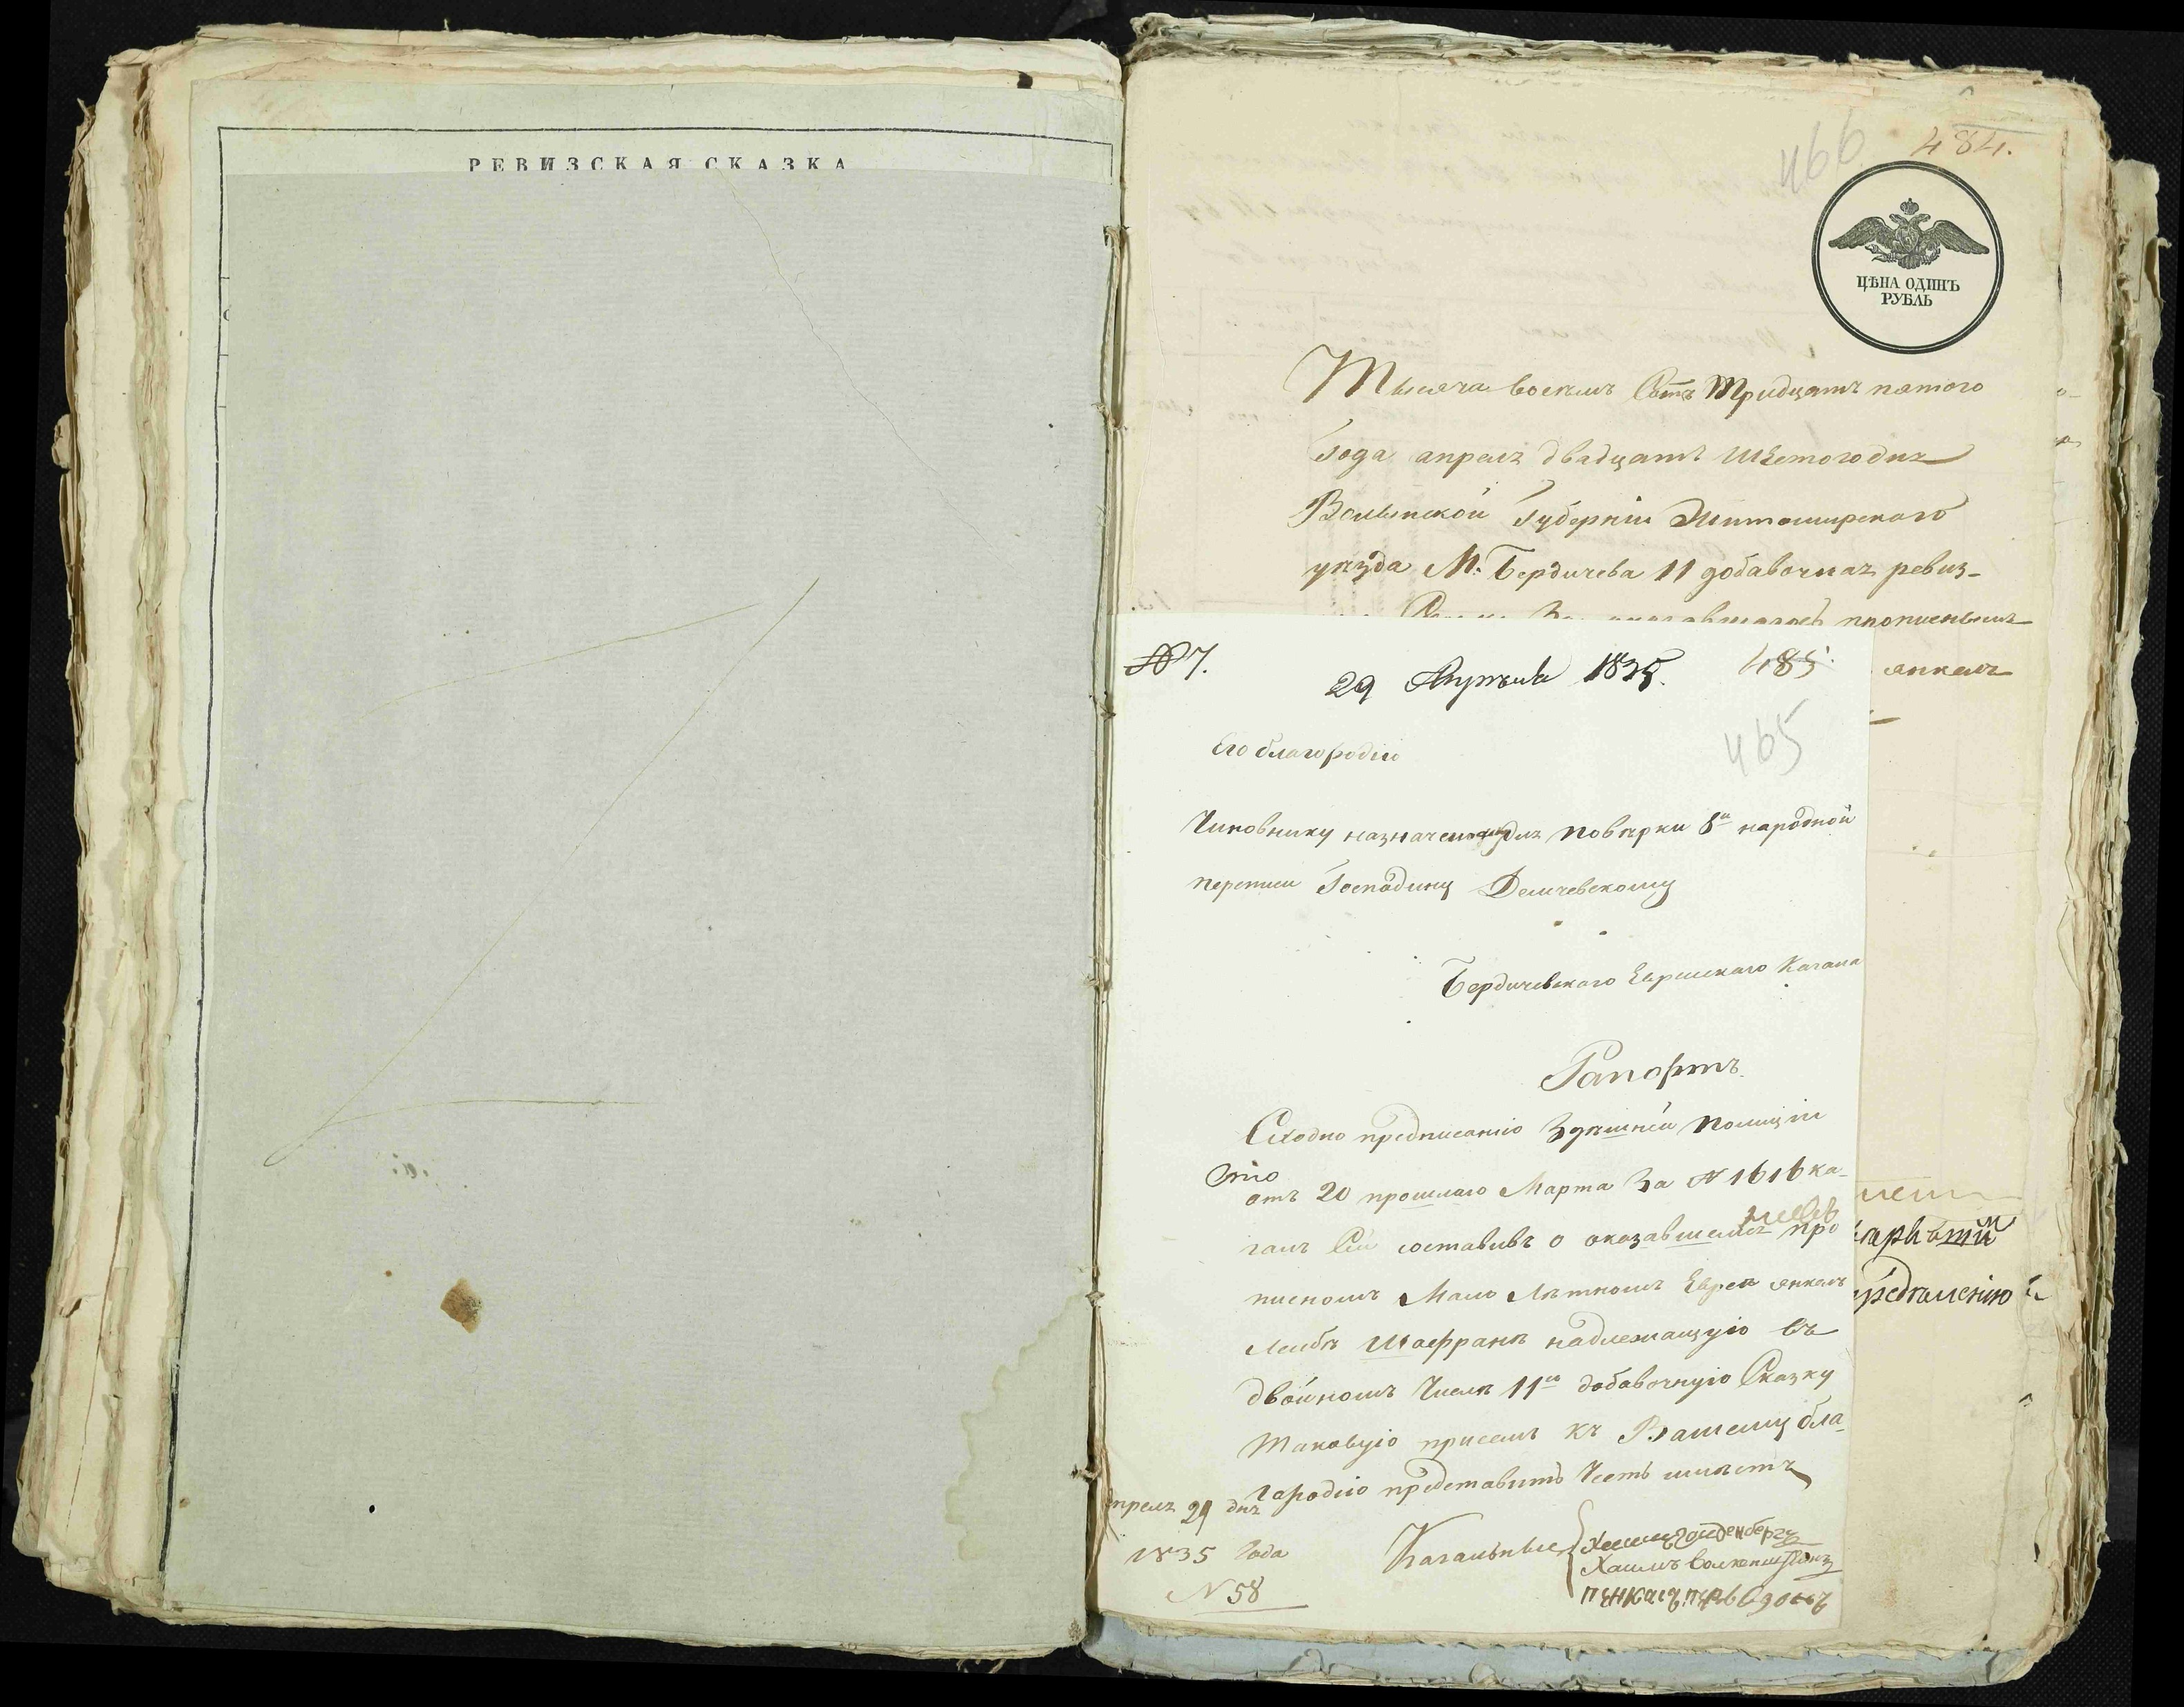 РЕВИЗСКАЯ СКАЗКА
466
484.
ЦѢНА ОДИНЪ
РУБЛЬ
Тысяча восемъ Сотъ Тридцать пятого
Года апреля двадцать шестого дня
Волынской Губерніи Житомирского
уѣзда М: Бердичева 11 добавочная ревиз-
прописнымъ
янкелъ
№ 7.
29 Апрѣля 1835.
485
465
Его благородію
Чиновнику назначенному для повѣрки 8й народной
переписи Господину Демчевскому
Бердичевского Еврейскаго Кагала
Рапортъ
Сходно предписанію Здѣшней Полиціи
отъ 20 прошлаго Марта За № 1616 ка-
галъ Сей составивъ о оказавшемся про
писномъ Мало Лѣтномъ Евреѣ янкелѣ
Лейбѣ Шафранѣ надлежащую въ
двойномъ Числѣ 11ю добавочную Сказку
Таковую присемъ къ Вашему бла-
городію представить Честь имѣетъ
апреля 29 дня
1835 Года
N 58
Кагальные